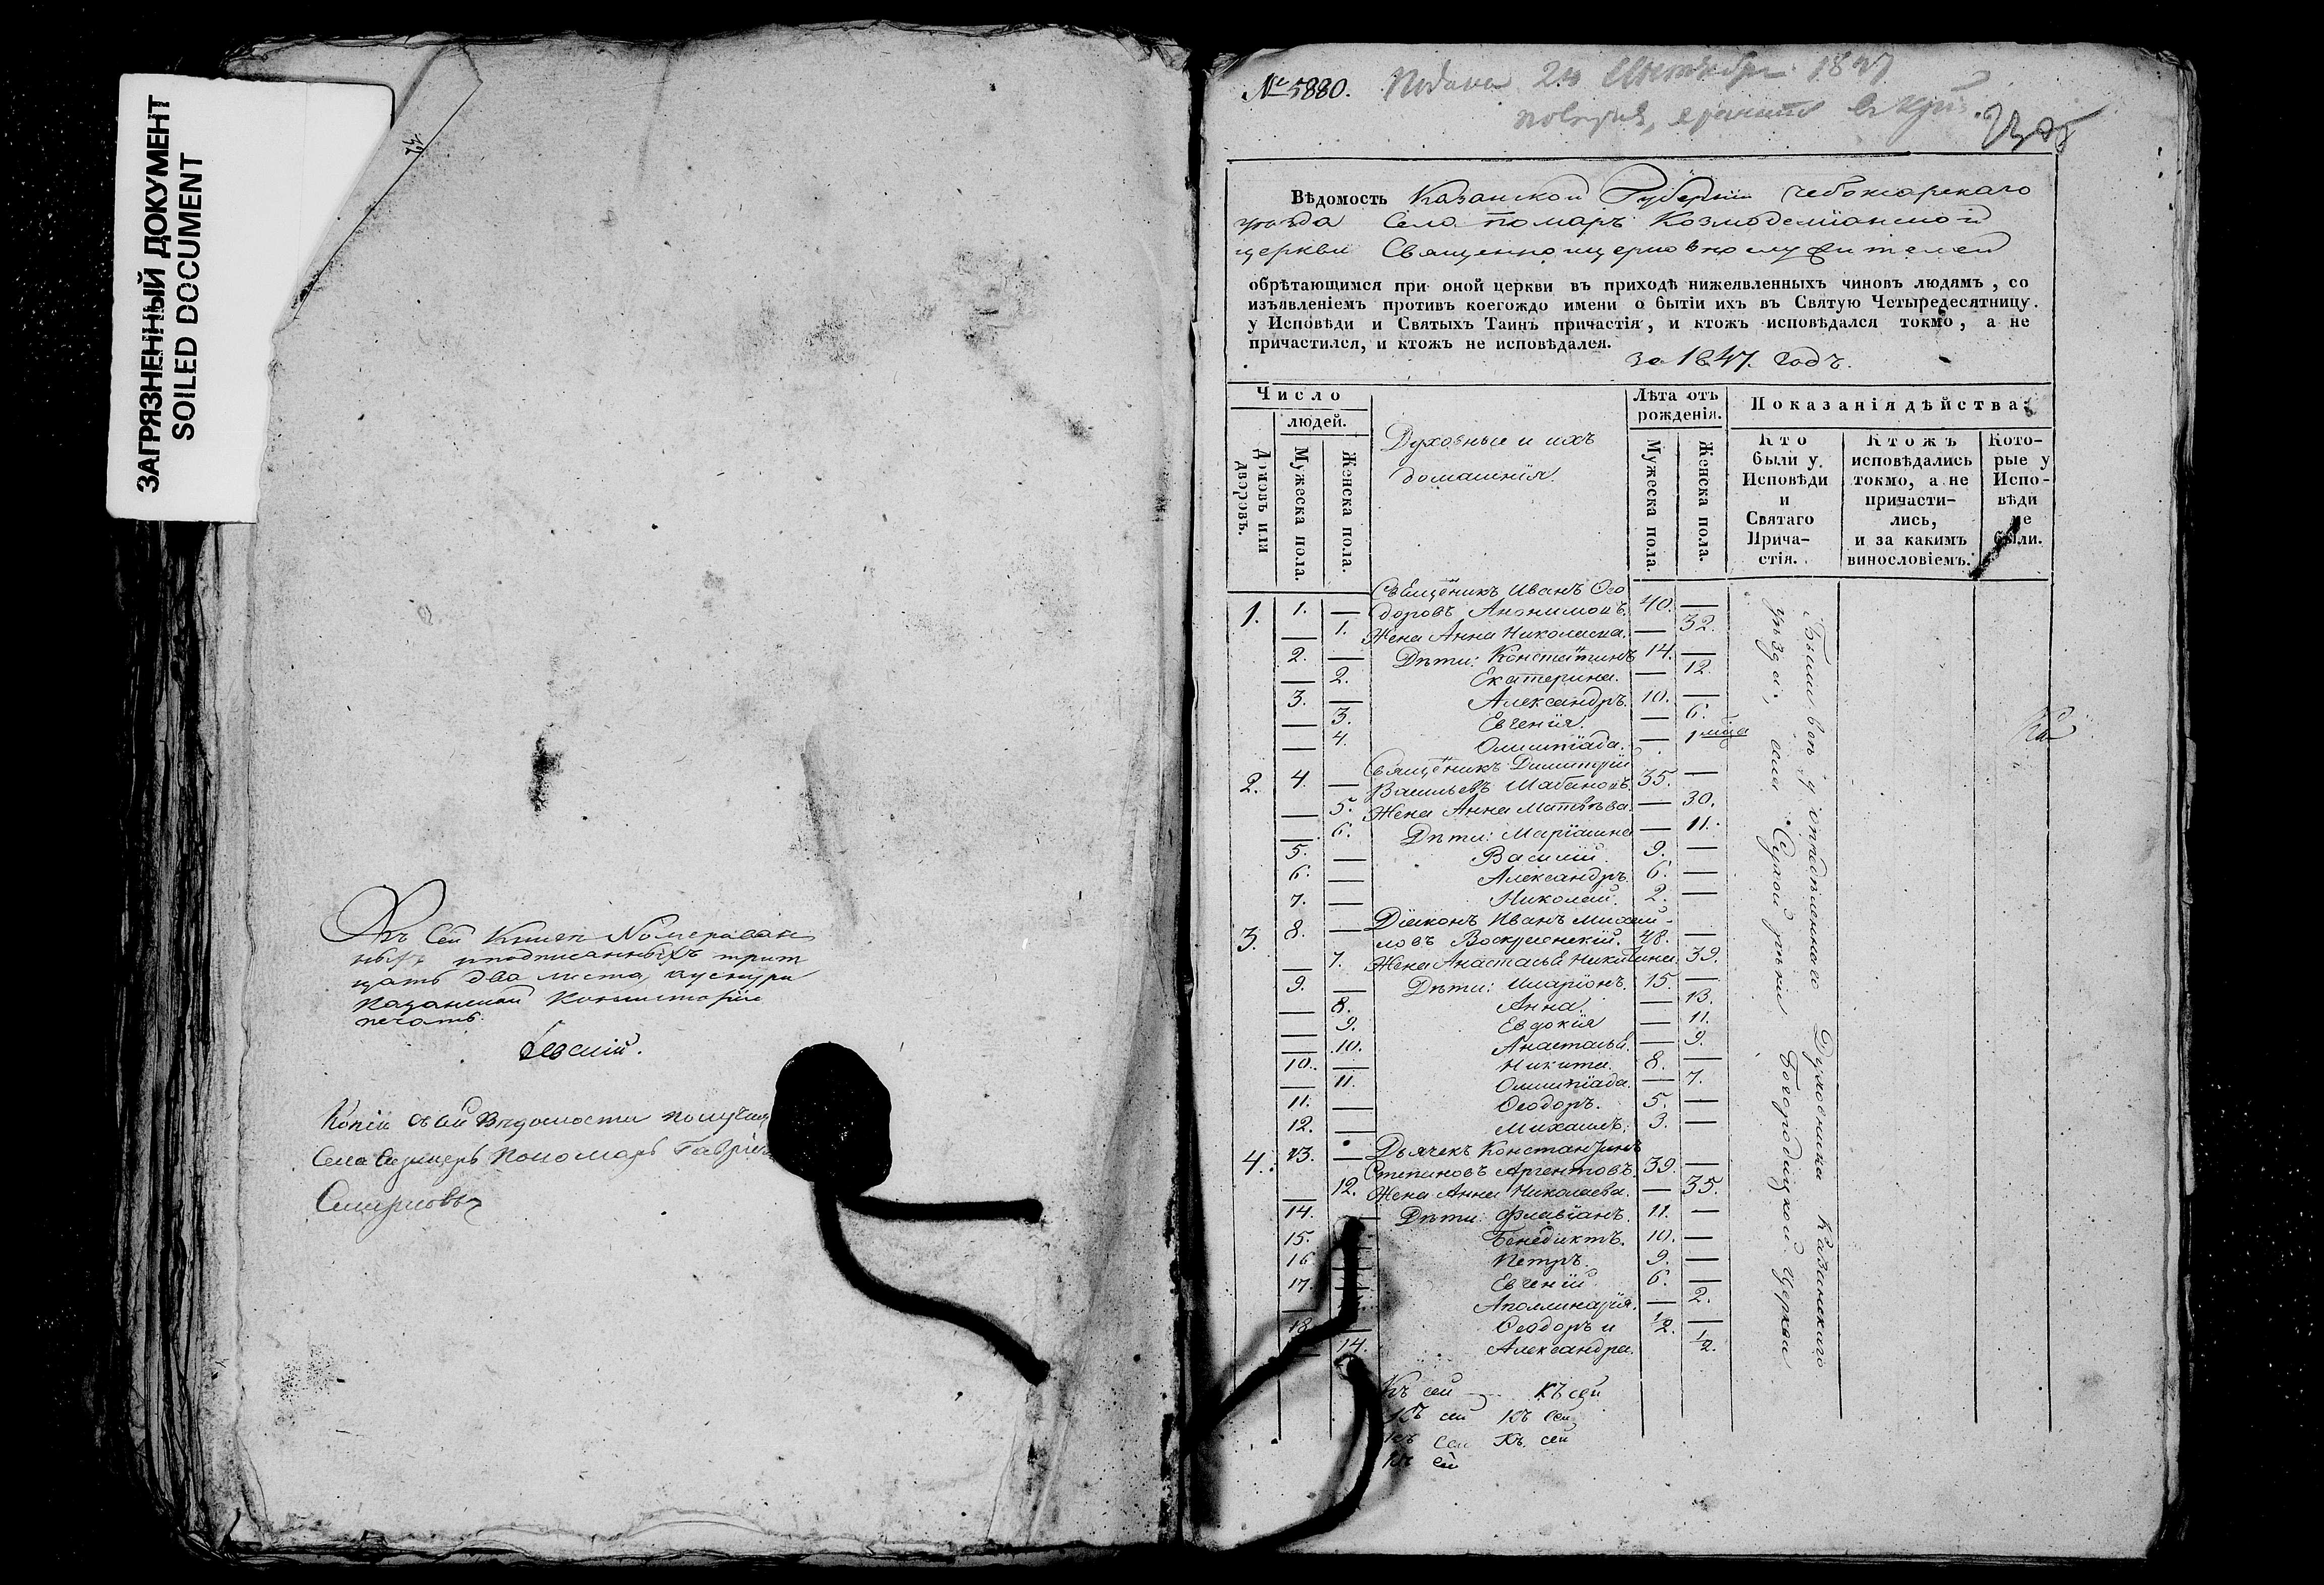 ЗАГРЯЗНЕННЫЙ ДОКУМЕНТ
SOILED DOCUMENT
Въ сей книгѣ номерован
ныхъ и подписанныхъ трит
цать два листа, и у снура
Казанской Консисторіи
печать.
Копію съ сей Вѣдомости получилъ
Села Пономарь Гаврі
Смирновъ
№ 5880. Подана 24 Сентября 1847
Вѣдомость Казанской Губерніи Чебоксарскаго
уѣзда Села Помаръ Козмодемїанской
церкви Священноцерковнослужителей
обрѣтающимся при оной церкви въ приходѣ нижеявленныхъ чиновъ людямъ, со
изъявленіемъ противъ коегождо имени о бытіи ихъ въ Святую Четыредесятницу
у Исповѣди и Святыхъ Таинъ причастія, и ктожъ исповѣдался токмо, а не
причастился, и ктожъ не исповѣдался.
за 1847. годъ.
Число
людей.
Домовъ или дворовъ.
Мужеска пола.
Женска пола.
Духовные и ихъ
домашнїя.
Лѣта отъ
рожденія.
Мужеска пола.
Женска пола.
Показанія дѣйства:
Кто
были у
Исповѣди
и
Святаго
Прича-
стія.
Ктожъ
исповѣдались
токмо, а не
причасти-
лись,
и за какимъ
винословіемъ.
Кото-
рые у
Испо-
вѣди
не
были.
Священникъ Иванъ Ѳео
1. 1. — доровъ 40. —
— 1. Жена Анна Николаева. — 32.
2. — Дѣти: Константинъ 14. —
— 2. Екатерина. — 12.
3. — Александръ. 10. —
— 3. Евгенїя. — 6.
— 4. Олимпїада. — 1 мѣсца
Священникъ Димитрїй
2. 4. — Васильевъ Шабановъ. 35. —
— 5. Жена Анна Матвѣева. — 30.
— 6. Дѣти: Марїамна — 11.
5. — Василїй. 9. —
6. — Александръ. 6. —
7. — Николай. 2. —
Дїаконъ Иванъ Михай-
3. 8. — ловъ Воскресенскїй. 48. —
— 7. Жена Анастасья Никитина. — 39.
9. — Дѣти: Иларїонъ. 15. —
— 8. Анна. — 13.
— 9. Евдокїя — 11.
— 10. Анастасья. — 9.
10. — Никита. 8. —
— 11. Олимпїада. — 7.
11. — Ѳеодоръ. 5. —
12. — Михаилъ. 3. —
Дьячекъ Константинъ
4. 13. — Степановъ Аргентовъ. 39. —
— 12. Жена Анна Николаева. — 35.
14. — Дѣти: Флавїанъ. 11. —
15. Бенедиктъ. 10. —
16 Петръ. 9. —
17. Евгенїй 6. —
— Аполлинарїя. — 2.
18. — Ѳеодоръ и 1/2. —
— 14. Александра. 1/2.
Были всѣ у опредѣленнаго Духовника Казанскаго
уѣзда, села Сухой рѣки Богородицкой церкви
Къ сей Къ сей
Къ сей Къ сей
Къ сей Къ сей
Къ сей